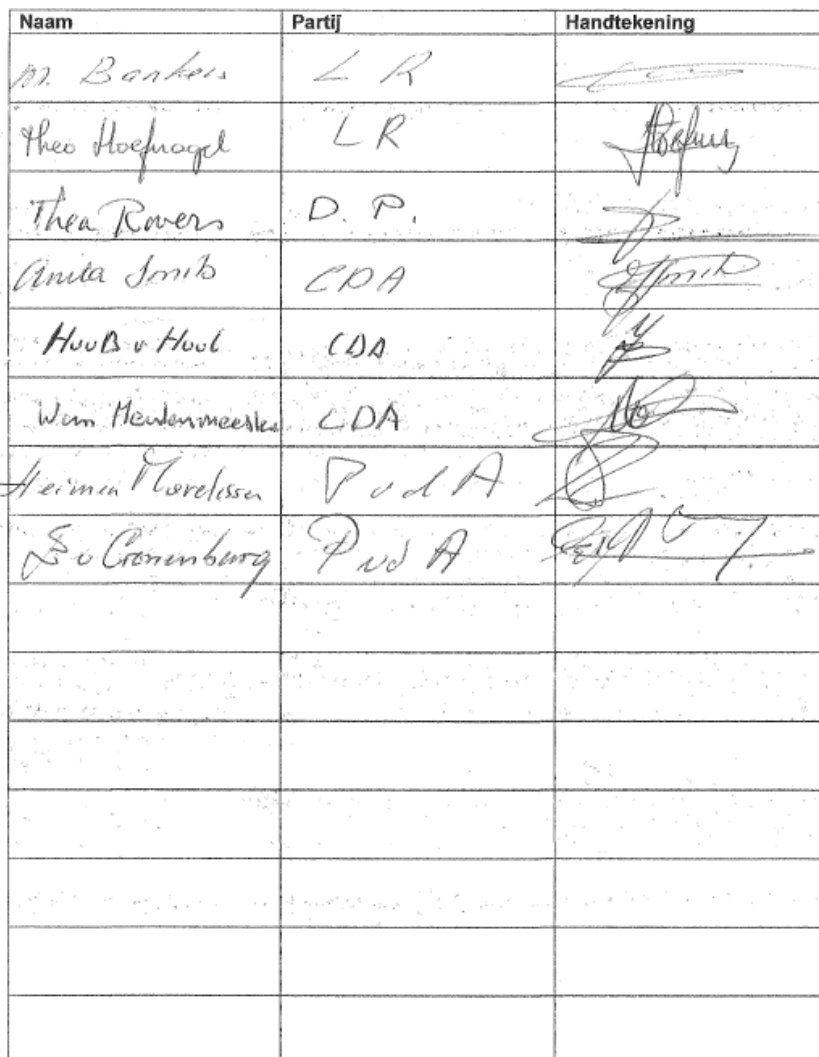 Naam Partij Handtekening
M. Bankers LR
Theo Hoefnagel LR
Thea Rovers D.P.
Anita Smits CDA
HuuB v Hool CDA
Wim CDA
Heimen PvdA
v Cronenburg PvdA